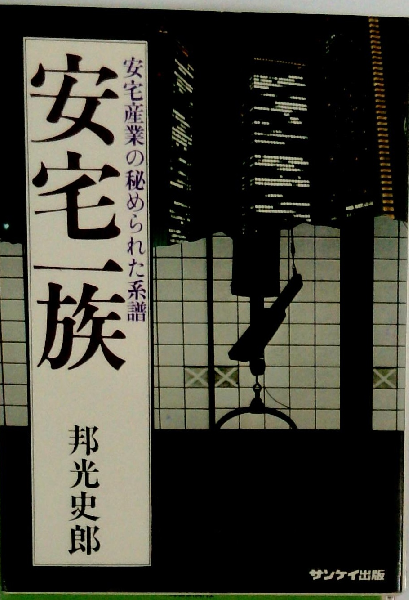 安宅産業の秘められた系譜
安宅一族
邦光史郎
サンケイ出版